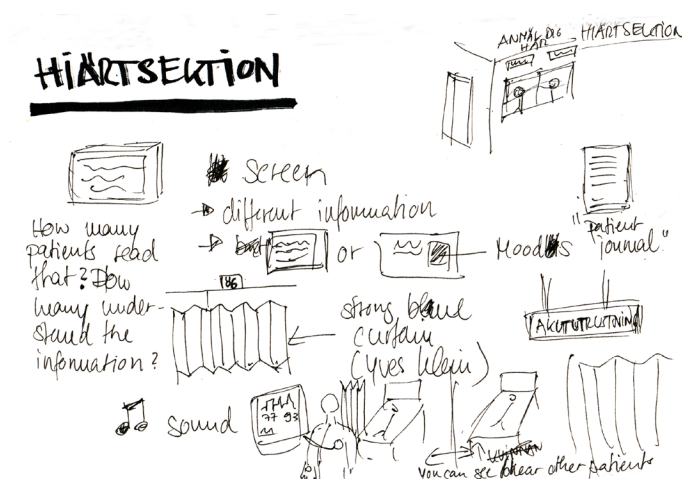 HJÄRTSEKTION
ANMÄL DIG
HÄR
HJÄRTSEKTION
Screen
different information
or
Moods
"patient
journal"
How many
patients read
that? How
many under-
stand the
information?
86
strong blue
curtain
(Yves Klein)
AKUTUTRUSTNING
sound
77 93
you can see/hear other patients